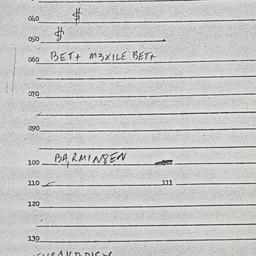 040 $
050 $
060 BET+ M3XILE BET+
070
090
100 BARMINGEN
110 111
120
130